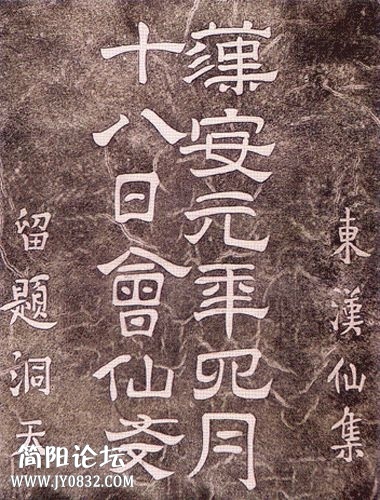 東漢仙集
漢安元年四月
十八日會仙友
留題洞天
简阳论坛
www.JY0832.com